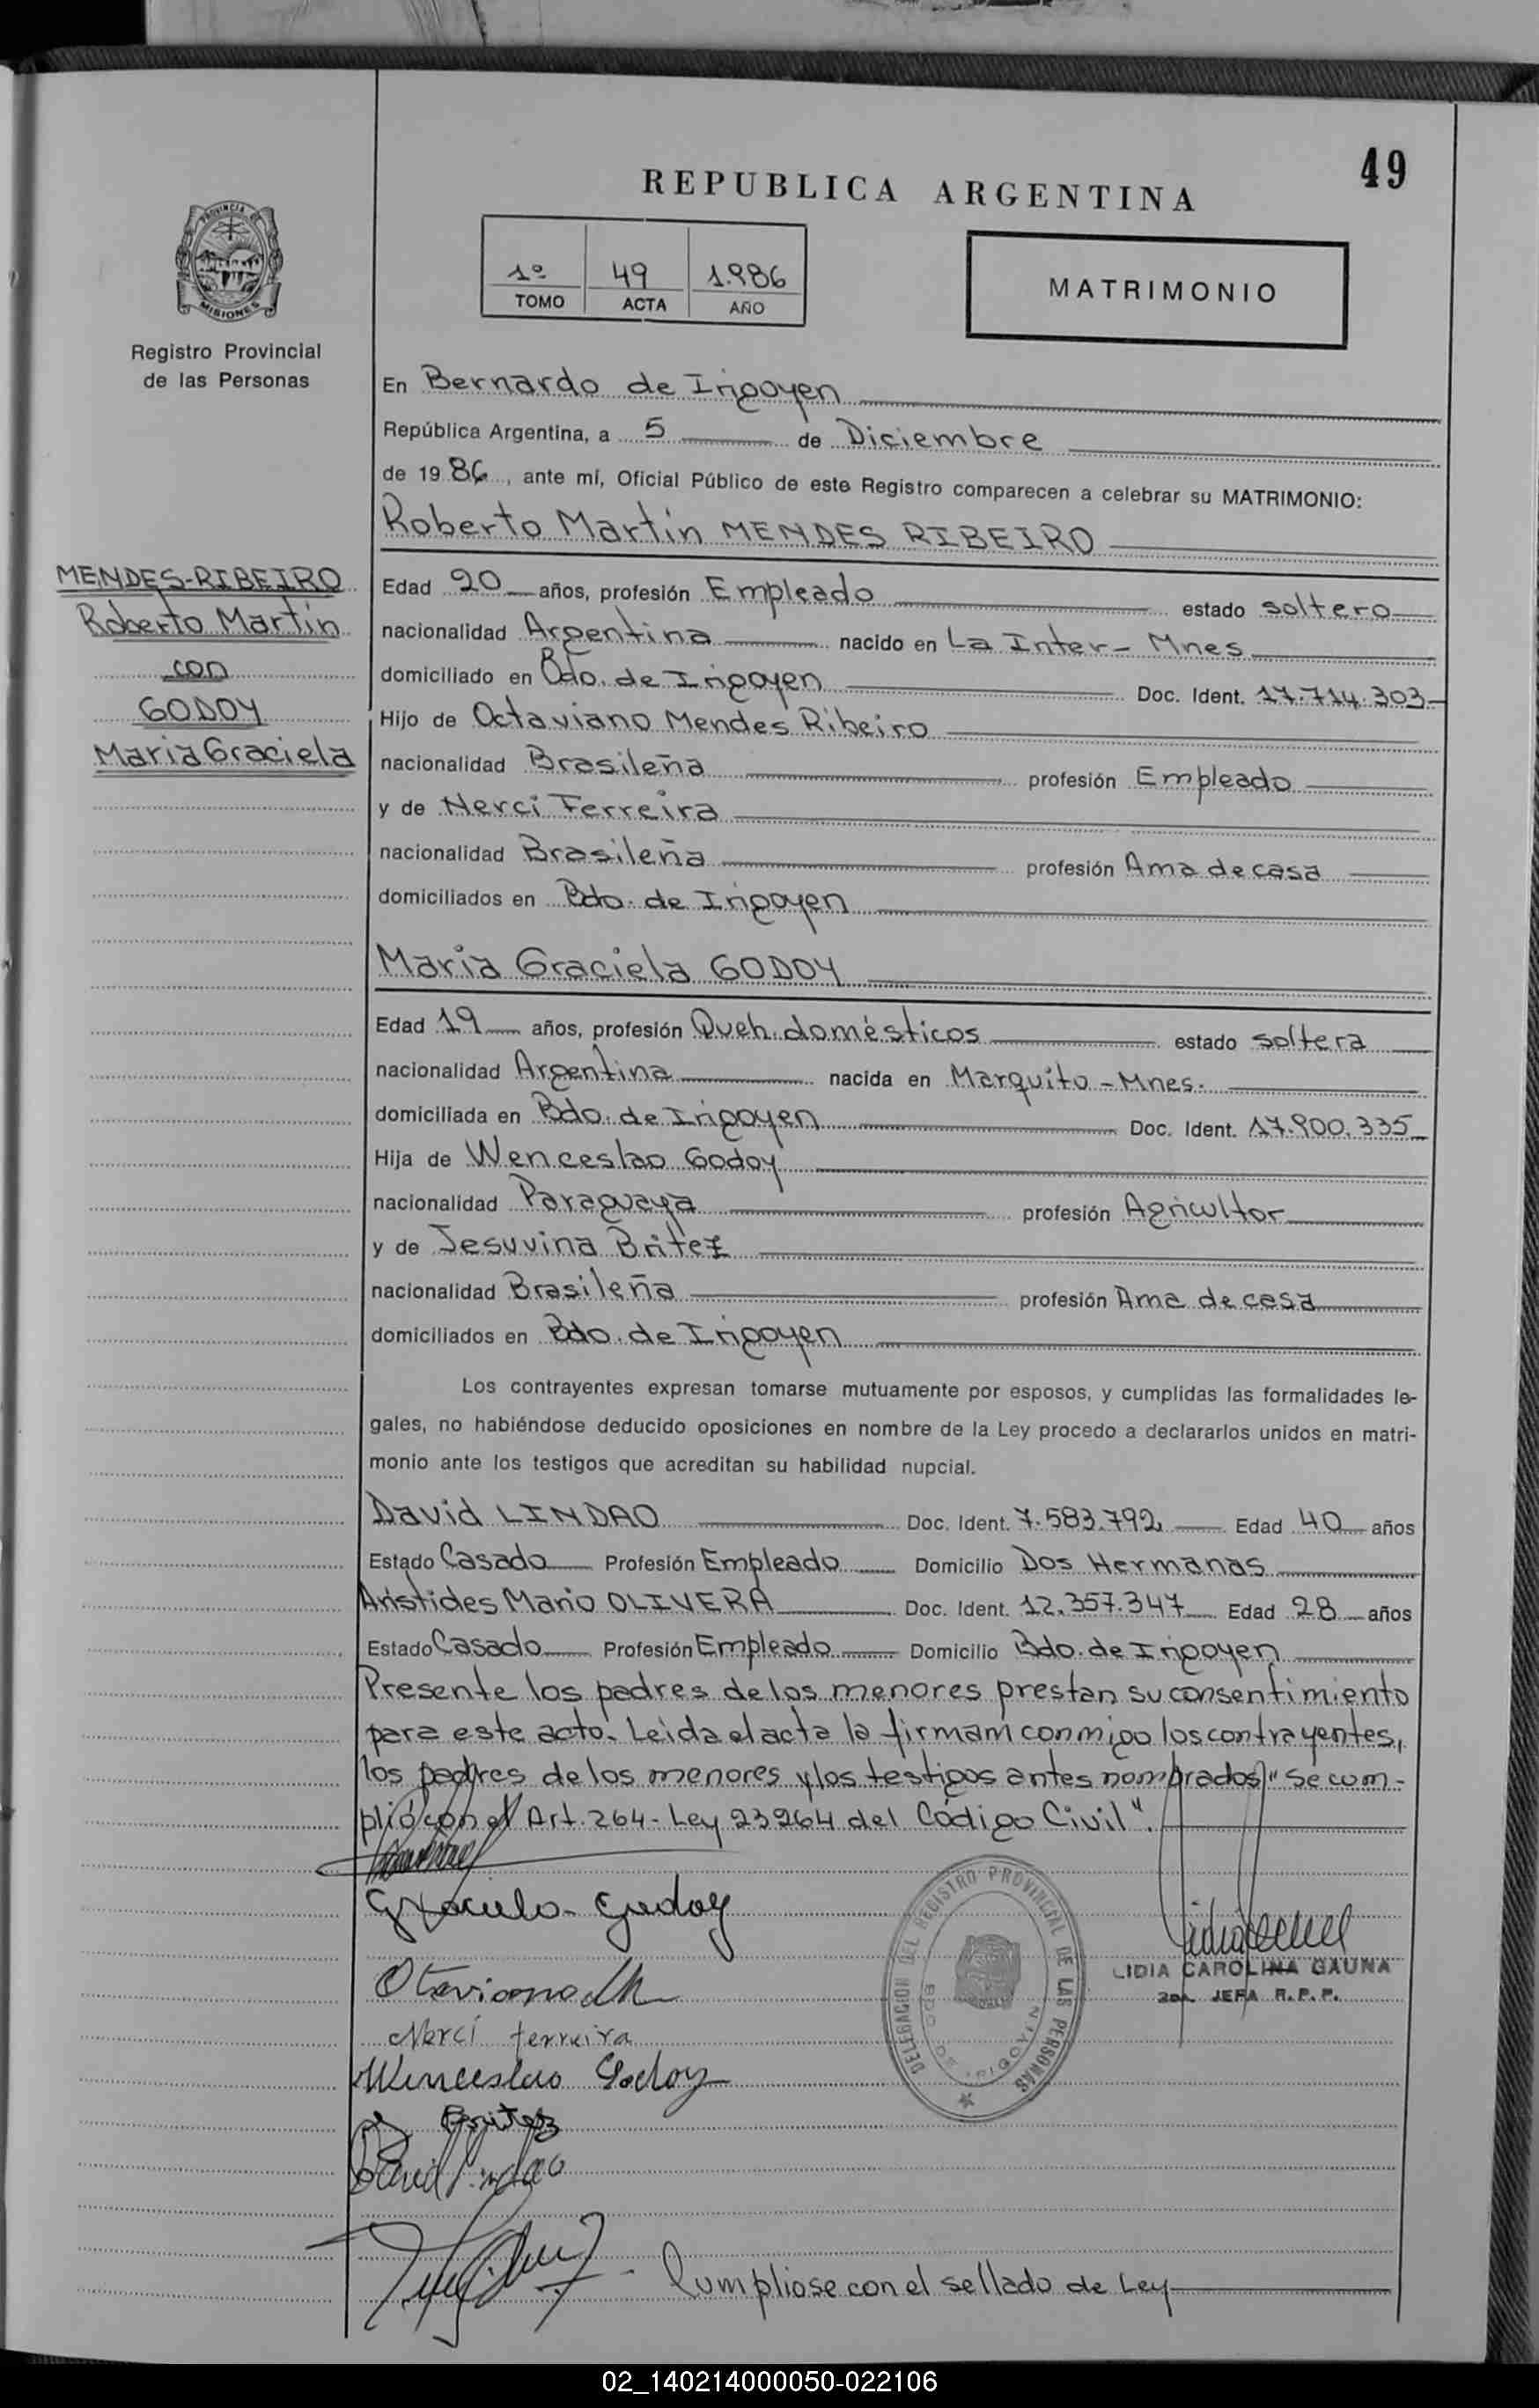 49
REPUBLICA ARGENTINA
PROVINCIA DE
MISIONES
Registro Provincial
de las Personas
1º 49 1.986
TOMO ACTA AÑO
MATRIMONIO
En Bernardo de Irigoyen
República Argentina, a 5 de Diciembre
de 1986, ante mí, Oficial Público de este Registro comparecen a celebrar su MATRIMONIO:
Roberto Martín MENDES RIBEIRO
MENDES-RIBEIRO
Roberto Martín
con
GODOY
Maria Graciela
Edad 20 años, profesión Empleado estado soltero
nacionalidad Argentina nacido en La Inter- Mnes
domiciliado en Bdo. de Irigoyen Doc. Ident. 17.714.303
Hijo de Octaviano Mendes Ribeiro
nacionalidad Brasileña profesión Empleado
y de Nerci Ferreira
nacionalidad Brasileña profesión Ama de casa
domiciliados en Bdo. de Irigoyen
Maria Graciela GODOY
Edad 19 años, profesión Queh. domésticos estado soltera
nacionalidad Argentina nacida en Marquito - Mnes.
domiciliada en Bdo. de Irigoyen Doc. Ident. 17.900.335
Hija de Wenceslao Godoy
nacionalidad Paraguaya profesión Agricultor
y de Jesuvina Britez
nacionalidad Brasileña profesión Ama de casa
domiciliados en Bdo. de Irigoyen
Los contrayentes expresan tomarse mutuamente por esposos, y cumplidas las formalidades le-
gales, no habiéndose deducido oposiciones en nombre de la Ley procedo a declararlos unidos en matri-
monio ante los testigos que acreditan su habilidad nupcial.
David LINDAO Doc. Ident. 7.583.792 Edad 40 años
Estado Casado Profesión Empleado Domicilio Dos Hermanas
Arístides Mario OLIVERA Doc. Ident. 12.357.347 Edad 28 años
Estado Casado Profesión Empleado Domicilio Bdo. de Irigoyen
Presente los padres de los menores prestan su consentimiento
para este acto. Leida el acta la firmam conmigo los contrayentes,
los padres de los menores y los testigos antes nombrados "Se cum-
plió con el Art. 264- Ley 23264 del Código Civil".
Graciela Godoy
Otaviano
Nerci ferreira
Wenceslao Godoy
Britez
David Lindao
DELEGACION DEL REGISTRO PROVINCIAL DE LAS PERSONAS
BDO. DE IRIGOYEN
LIDIA CAROLINA GAUNA
JEFA R.P.P.
Cumpliose con el sellado de Ley
02_140214000050-022106